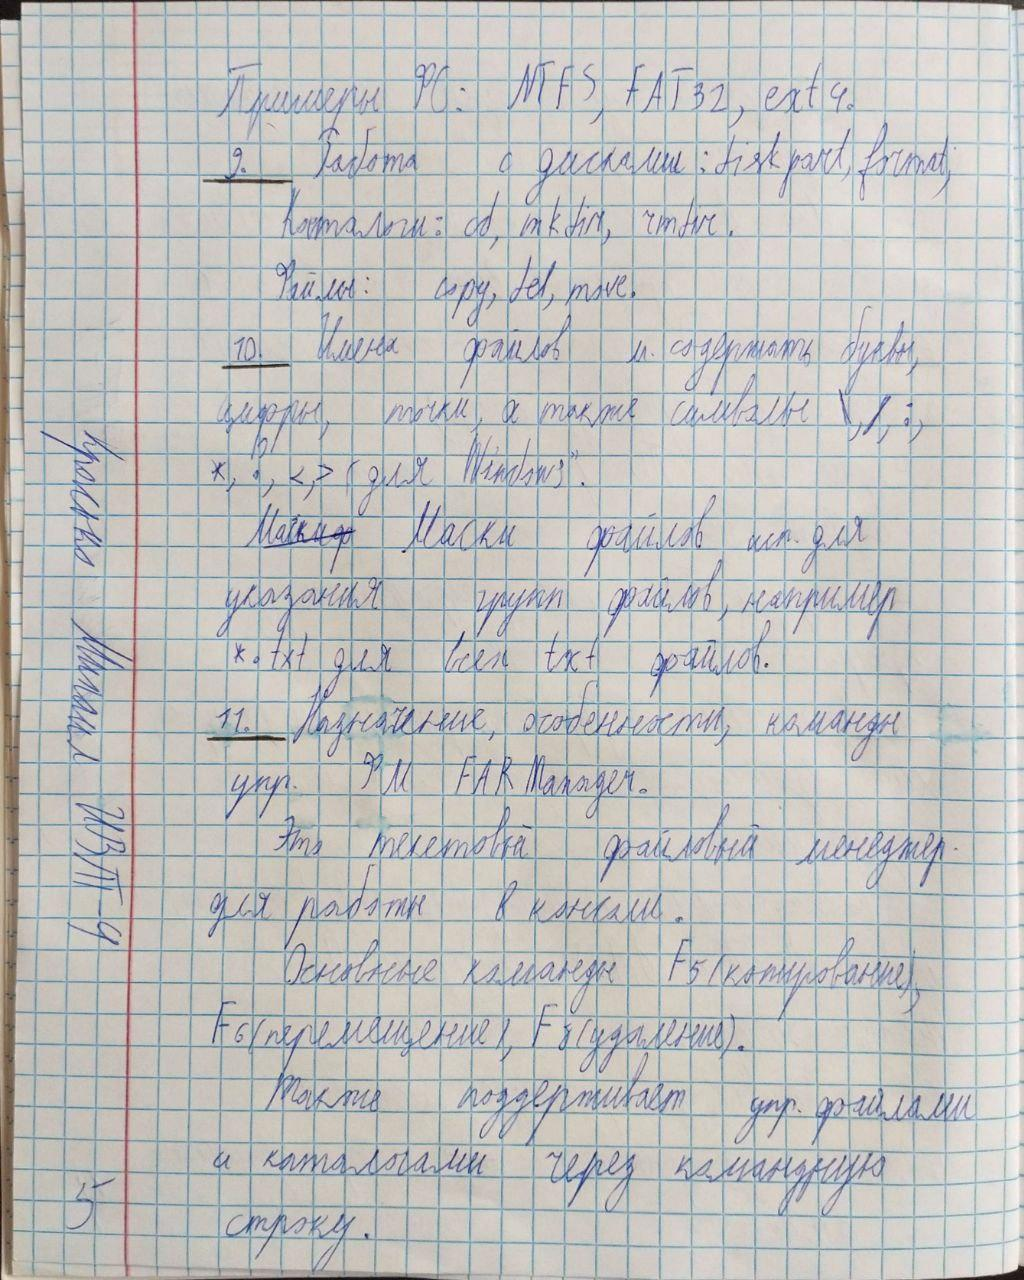 Примеры ФС: NTFS, FAT32, ext4.
9. Работа с дисками: diskpart, format;
Каталоги: cd, mkdir, rmdir.
Файлы: copy, del, move.
10. Имена файлов м. содержать буквы,
цифры, точки, а также символы \, /, :,
*, ?, <, > (для Windows".
Маски файлов исп. для
указания групп файлов, например
*.txt для всех txt файлов.
11. Назначение, особенности, команды
упр. ФМ FAR Manager.
Это текстовый файловый менеджер.
для работы в консоли.
Основные команды F5 (копирование),
F6 (перемещение), F8 (удаление).
Также поддерживает упр. файлами
и каталогами через командную
строку.
Михаил ИЗТ-9
5